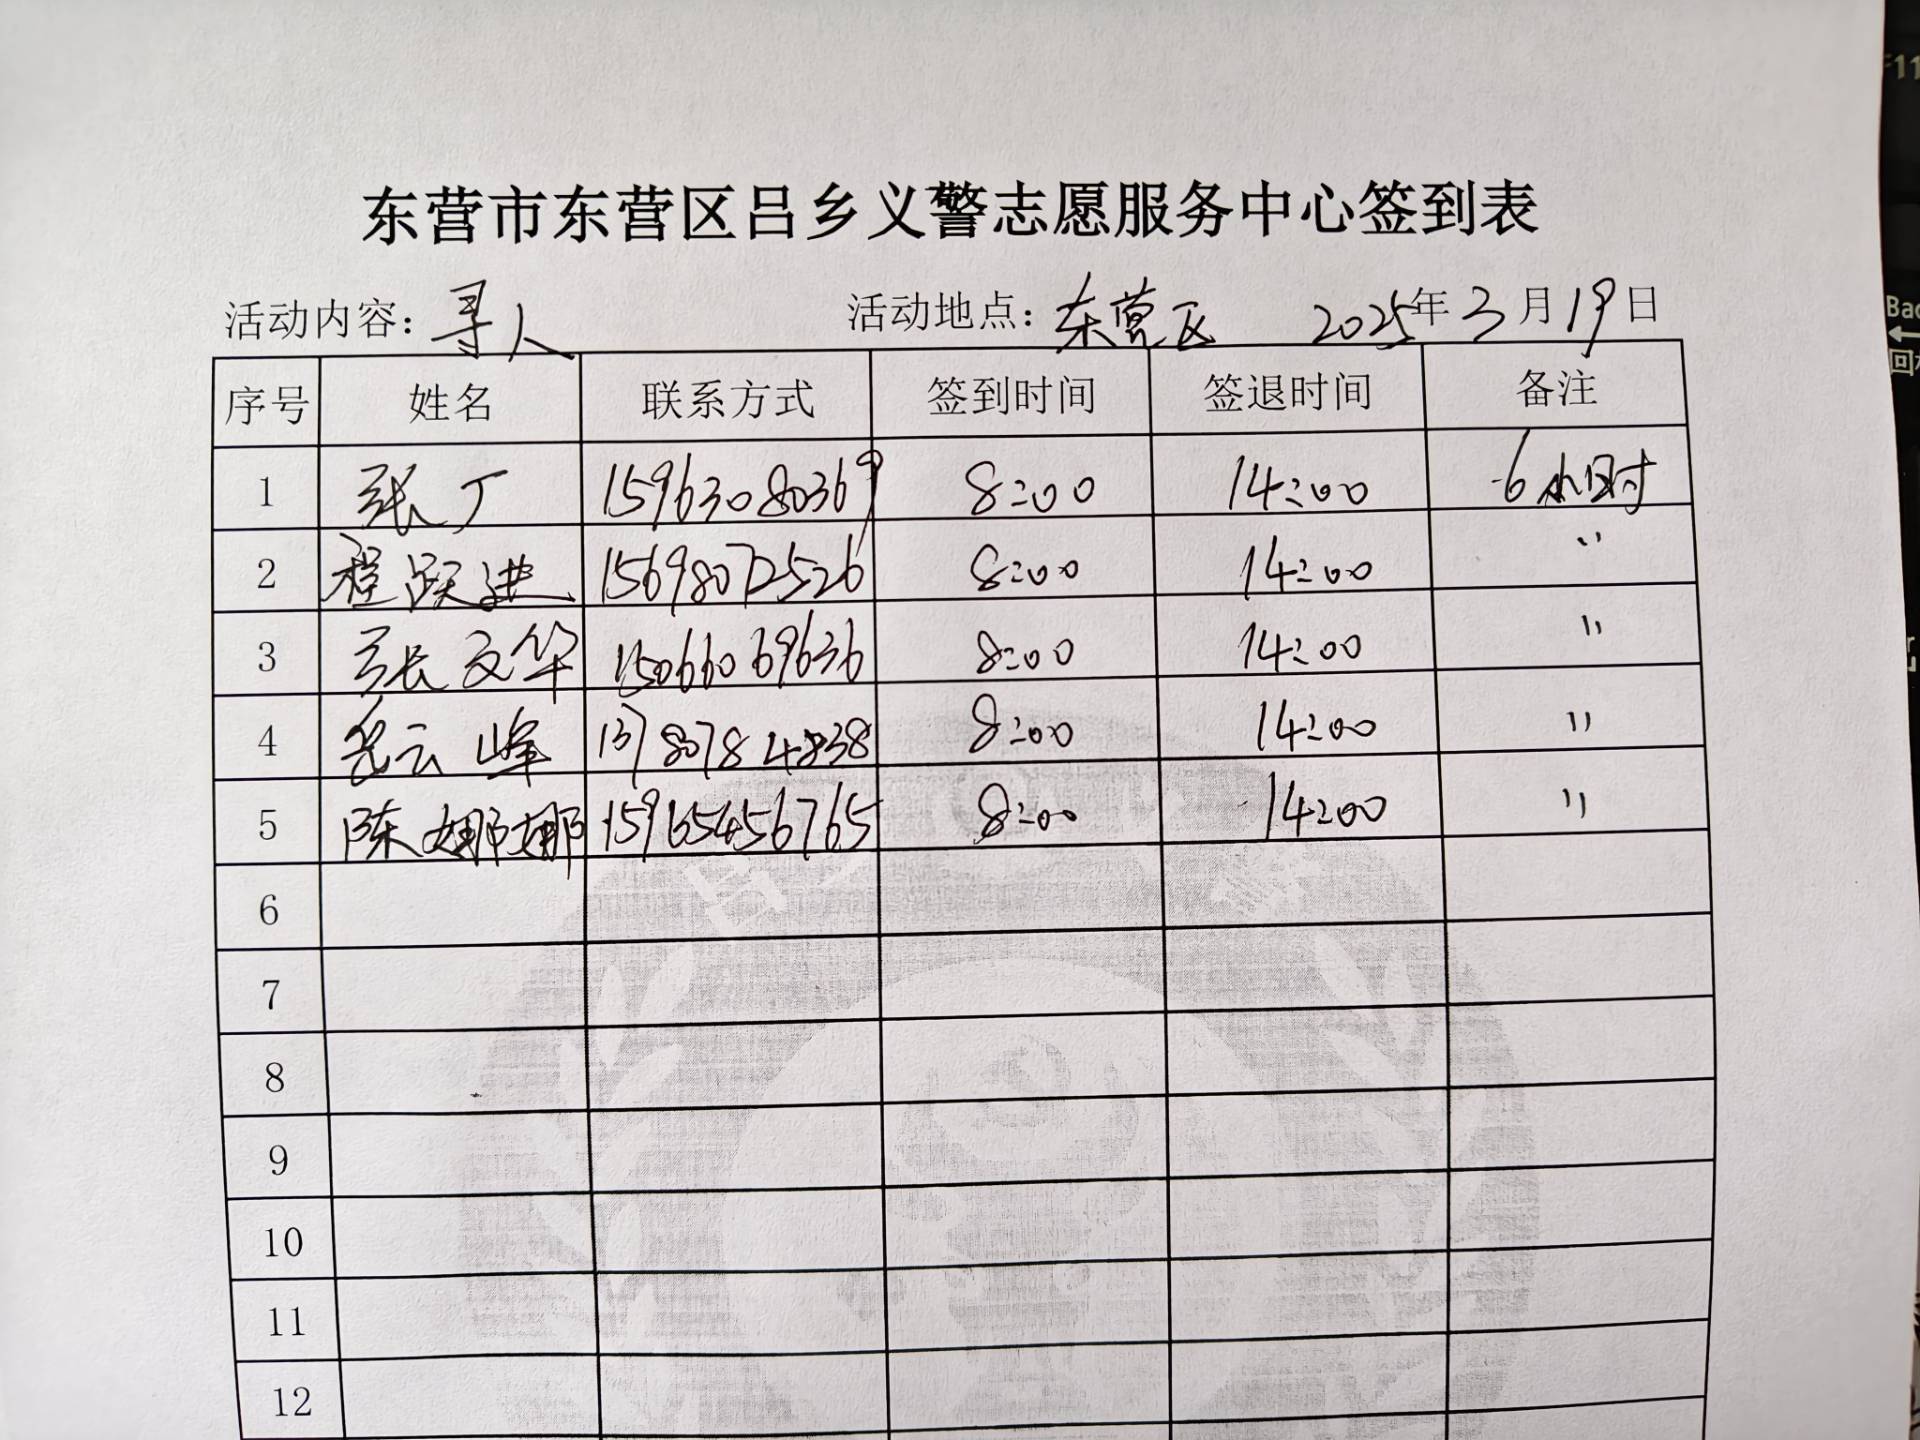 东营市东营区吕乡义警志愿服务中心签到表
活动内容：寻人 活动地点：东营区 2025年3月19日
序号 姓名 联系方式 签到时间 签退时间 备注
1 张丁 15963080369 8:00 14:00 6小时
2 程跃进 15698072526 8:00 14:00 〃
3 张文华 15066069636 8:00 14:00 〃
4 岳云峰 13780784838 8:00 14:00 〃
5 陈娜娜 15965456765 8:00 14:00 〃
6
7
8
9
10
11
12
F11
Bac
回